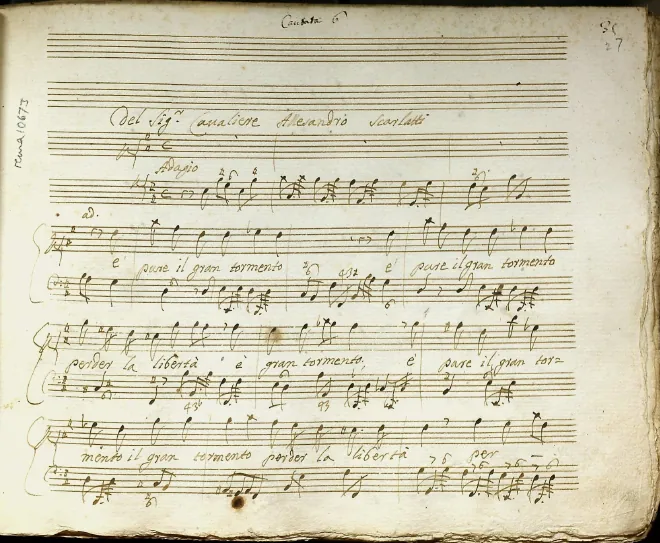 Cantata 6
35
27
rema10673
Del Sigr. Cavaliere Allesandro Scarlatti
Adagio
ad.
è pure il gran tormento è pure il gran tormento
perder la libertà è gran tormento, è pure il gran tor=
mento il gran tormento perder la libertà per